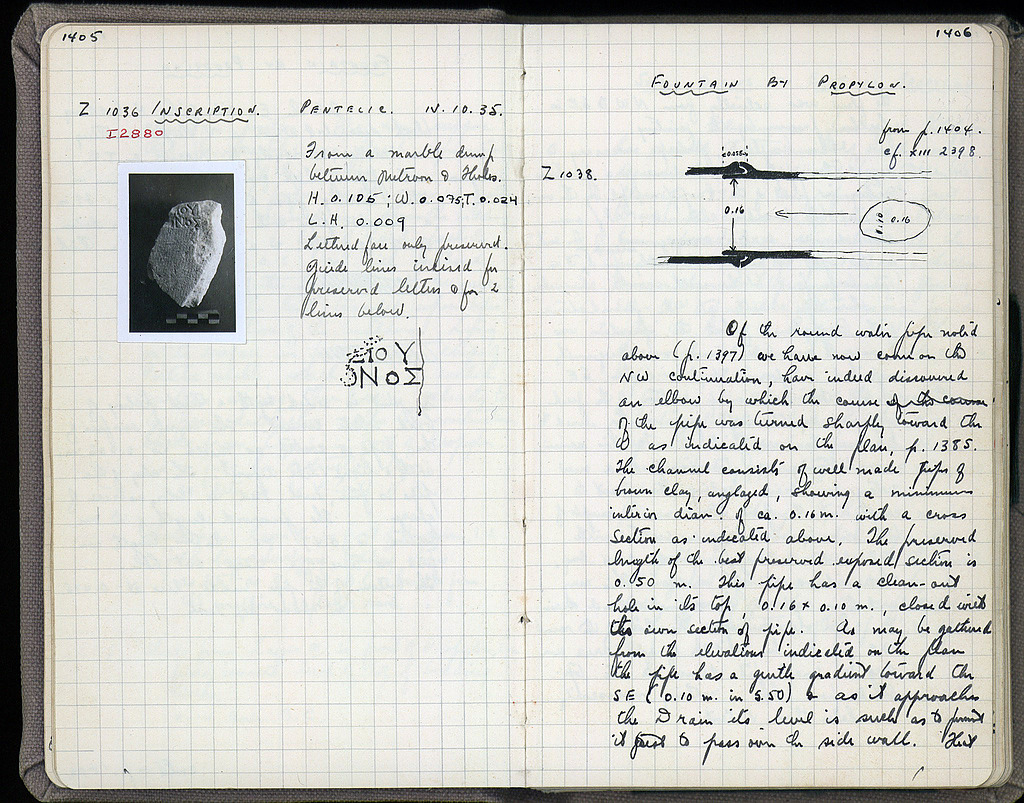 1405
Z 1036 INSCRIPTION. PENTELIC. IV.10.35.
I 2880
From a marble dump
between Metroon & Tholos.
H. 0.105; W. 0.075; T. 0.024
L.H. 0.009
Lettered face only preserved.
Guide lines incised for
preserved letters & for 2
lines below.
ΣΙΟΥ
ΟΝΟΣ
1406
FOUNTAIN BY PROPYLON.
from p. 1404.
cf. XIII 2398.
Z 1038.
0.16
0.10 0.16
Of the round water pipe noted
above (p. 1397) we have now come on the
NW continuation, have indeed discovered
an elbow by which the course of the course
of the pipe was turned sharply toward the
W as indicated on the plan, p. 1385.
The channel consists of well made pipes of
brown clay, unglazed, showing a minimum
interior diam. of ca. 0.16 m. with a cross
section as indicated above. The preserved
length of the best preserved exposed section is
0.50 m. This pipe has a clean-out
hole in its top, 0.16 x 0.10 m., closed with
its own section of pipe. As may be gathered
from the elevations indicated on the plan
the pipe has a gentle gradient toward the
SE (0.10 m. in 5.50) & as it approaches
the Drain its level is such as to permit
it just to pass over the side wall. That